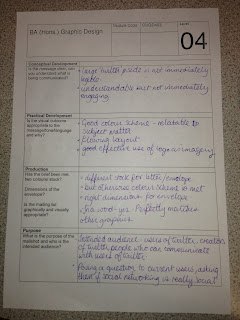 BA (Hons.) Graphic Design
Module Code
OUGD404
Level
04
Conceptual Development
Is the message clear, can you understand what is being communicated?
• large twitter aside is not immediately legible
• understandable but not immediately engaging
Practical Development
Is the visual outcome appropriate to the message/tone/language and why?
• Good colour scheme - relatable to subject matter
• flowing layout
• good effective use of logo as imagery
Production
Has the brief been met, two colours+stock?
Dimensions of the envelope?
Is the mailing list graphically and visually appropriate?
• different stock for letter/envelope
• but otherwise colour scheme is met
• right dimensions for envelope
•
yes. Perfectly matches other graphics
Purpose
What is the purpose of the mailshot and who is the intended audience?
• Intended audience - users of twitter, creators of twitter, people who can communicate with users of twitter
• Posing a question to current users, asking them if social networking is really 'social'